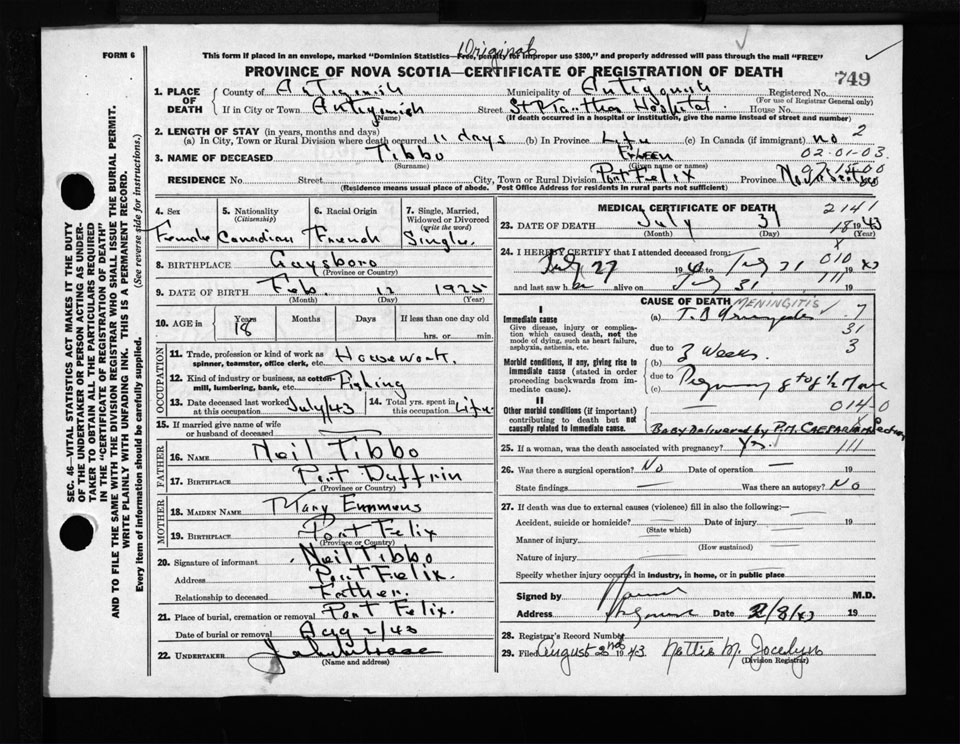 Original
FORM 6
This form if placed in an envelope, marked "Dominion Statistics—Free, penalty for improper use $300," and properly addressed will pass through the mail "FREE"
PROVINCE OF NOVA SCOTIA—CERTIFICATE OF REGISTRATION OF DEATH
749
1. PLACE OF DEATH
County of Antigonish Municipality of Antigonish Registered No.
(For use of Registrar General only)
If in City or Town Antigonish Street St Martha Hospital House No.
(Name) (If death occurred in a hospital or institution, give the name instead of street and number)
2. LENGTH OF STAY (in years, months and days)
(a) In City, Town or Rural Division where death occurred 11 days (b) In Province Life (c) In Canada (if immigrant) no 2
02-01-03
3. NAME OF DECEASED Tibbo Eileen
(Surname) (Given name or names)
RESIDENCE No. Street City, Town or Rural Division Port Felix Province
(Residence means usual place of abode. Post Office Address for residents in rural parts not sufficient)
4. Sex Female
5. Nationality (Citizenship) Canadian
6. Racial Origin French
7. Single, Married, Widowed or Divorced (write the word) Single
8. BIRTHPLACE Gaysboro
(Province or Country)
9. DATE OF BIRTH Feb. 12 1925
(Month) (Day) (Year)
10. AGE in Years 18 Months Days If less than one day old
hrs. or min.
OCCUPATION
11. Trade, profession or kind of work as spinner, teamster, office clerk, etc. Housework.
12. Kind of industry or business, as cotton-mill, lumbering, bank, etc. Fishing
13. Date deceased last worked at this occupation July/43
14. Total yrs. spent in this occupation Life
15. If married give name of wife or husband of deceased
FATHER
16. NAME Neil Tibbo
17. BIRTHPLACE Port Duffrin
(Province or Country)
MOTHER
18. MAIDEN NAME Mary Emmons
19. BIRTHPLACE Port Felix
(Province or Country)
20. Signature of informant Neil Tibbo
Address Port Felix.
Relationship to deceased Father.
21. Place of burial, cremation or removal Port Felix.
Date of burial or removal Aug 2/43
22. UNDERTAKER
(Name and address)
MEDICAL CERTIFICATE OF DEATH 2141
23. DATE OF DEATH July 31 1943
(Month) (Day) (Year)
24. I HEREBY CERTIFY that I attended deceased from:
July 27 194 to July 31 1943
and last saw her alive on July 31 19
010
111
CAUSE OF DEATH MENINGITIS
I
Immediate cause
Give disease, injury or complication which caused death, not the mode of dying, such as heart failure, asphyxia, asthenia, etc.
(a) T.B 7
31
due to 3
Morbid conditions, if any, giving rise to immediate cause (stated in order proceeding backwards from immediate cause).
(b) 3 Weeks.
due to
(c) Pregnancy 8 to 8 1/2
II
Other morbid conditions (if important) contributing to death but not causally related to immediate cause.
014-0
Baby Delivered by P.M. Caeparian Section
25. If a woman, was the death associated with pregnancy? Yes. 111
26. Was there a surgical operation? No Date of operation — 19
State findings — Was there an autopsy? No
27. If death was due to external causes (violence) fill in also the following:—
Accident, suicide or homicide? Date of injury 19
(State which)
Manner of injury
(How sustained)
Nature of injury
Specify whether injury occurred in industry, in home, or in public place
Signed by M.D.
Address Date 2/8/43 19
28. Registrar's Record Number
29. Filed August 2nd 1943 Nettie M. Jocelyn
(Division Registrar)
SEC. 46—VITAL STATISTICS ACT MAKES IT THE DUTY OF THE UNDERTAKER OR PERSON ACTING AS UNDERTAKER TO OBTAIN ALL THE PARTICULARS REQUIRED IN THE "CERTIFICATE OF REGISTRATION OF DEATH" AND TO FILE THE SAME WITH THE DIVISION REGISTRAR WHO SHALL ISSUE THE BURIAL PERMIT. WRITE PLAINLY WITH UNFADING INK. THIS IS A PERMANENT RECORD.
Every item of information should be carefully supplied. (See reverse side for instructions.)